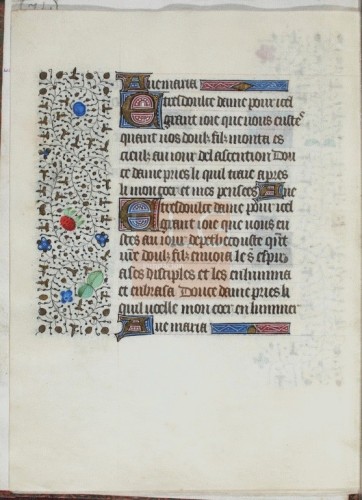 Aue maria
E tresdoulce dame pour icel
grant ioie que vous eustes
quant vos doulz filz monta es
cieulz au iour del ascention Dou
ce dame pries li quil traie apres
li mon coer et mes pensees Aue
E tresdoulce dame pour icel
grant ioie que vous eu
stes au iour de penthecouste
vre doulz filz enuoia le s espir
a ses disciples et les enlumina
et enbrasa Doulce dame pries li
quil voelle mon coer enluminer
Aue maria